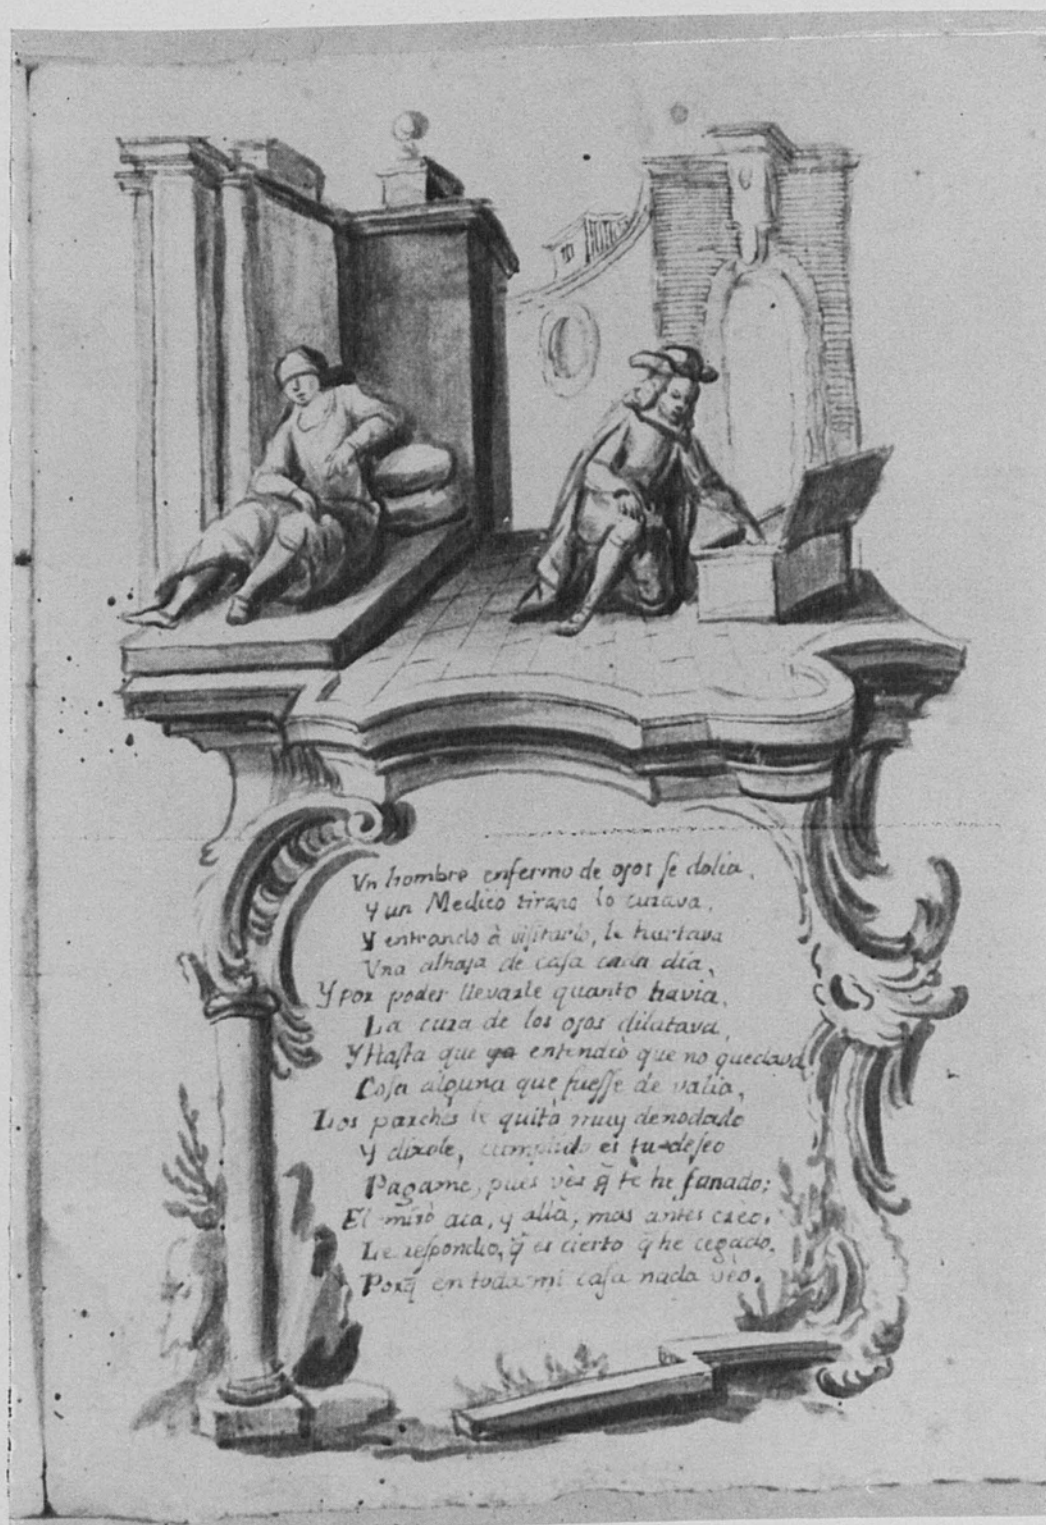 Vn hombre enfermo de ojos se dolia,
y un Medico tirano lo curava,
y entrando à visitarlo, le hurtava
Vna alhaja de casa cada dia,
Y por poder llevarle quanto havia,
La cura de los ojos dilatava,
Y Hasta que ya entendiò que no quedava
Cosa alguna que fuesse de valia,
Los parches le quitò muy denodado
Y dixole, cumplido es tu deseo
Pagame, pues vès q̃ te he sanado;
El mirò aca, y allà, mas antes creo,
Le respondio, q̃ es cierto q̃ he cegado,
Porq̃ en toda mi casa nada vèo.